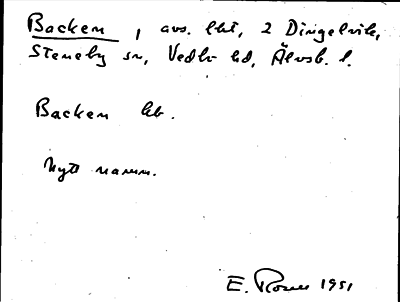 Backen, avs. lht, 2 Dingelvik,
Steneby sn, Vedbo hd, Älvsb. l.
Backen kb.
Nytt namn.
E. Rosen 1951